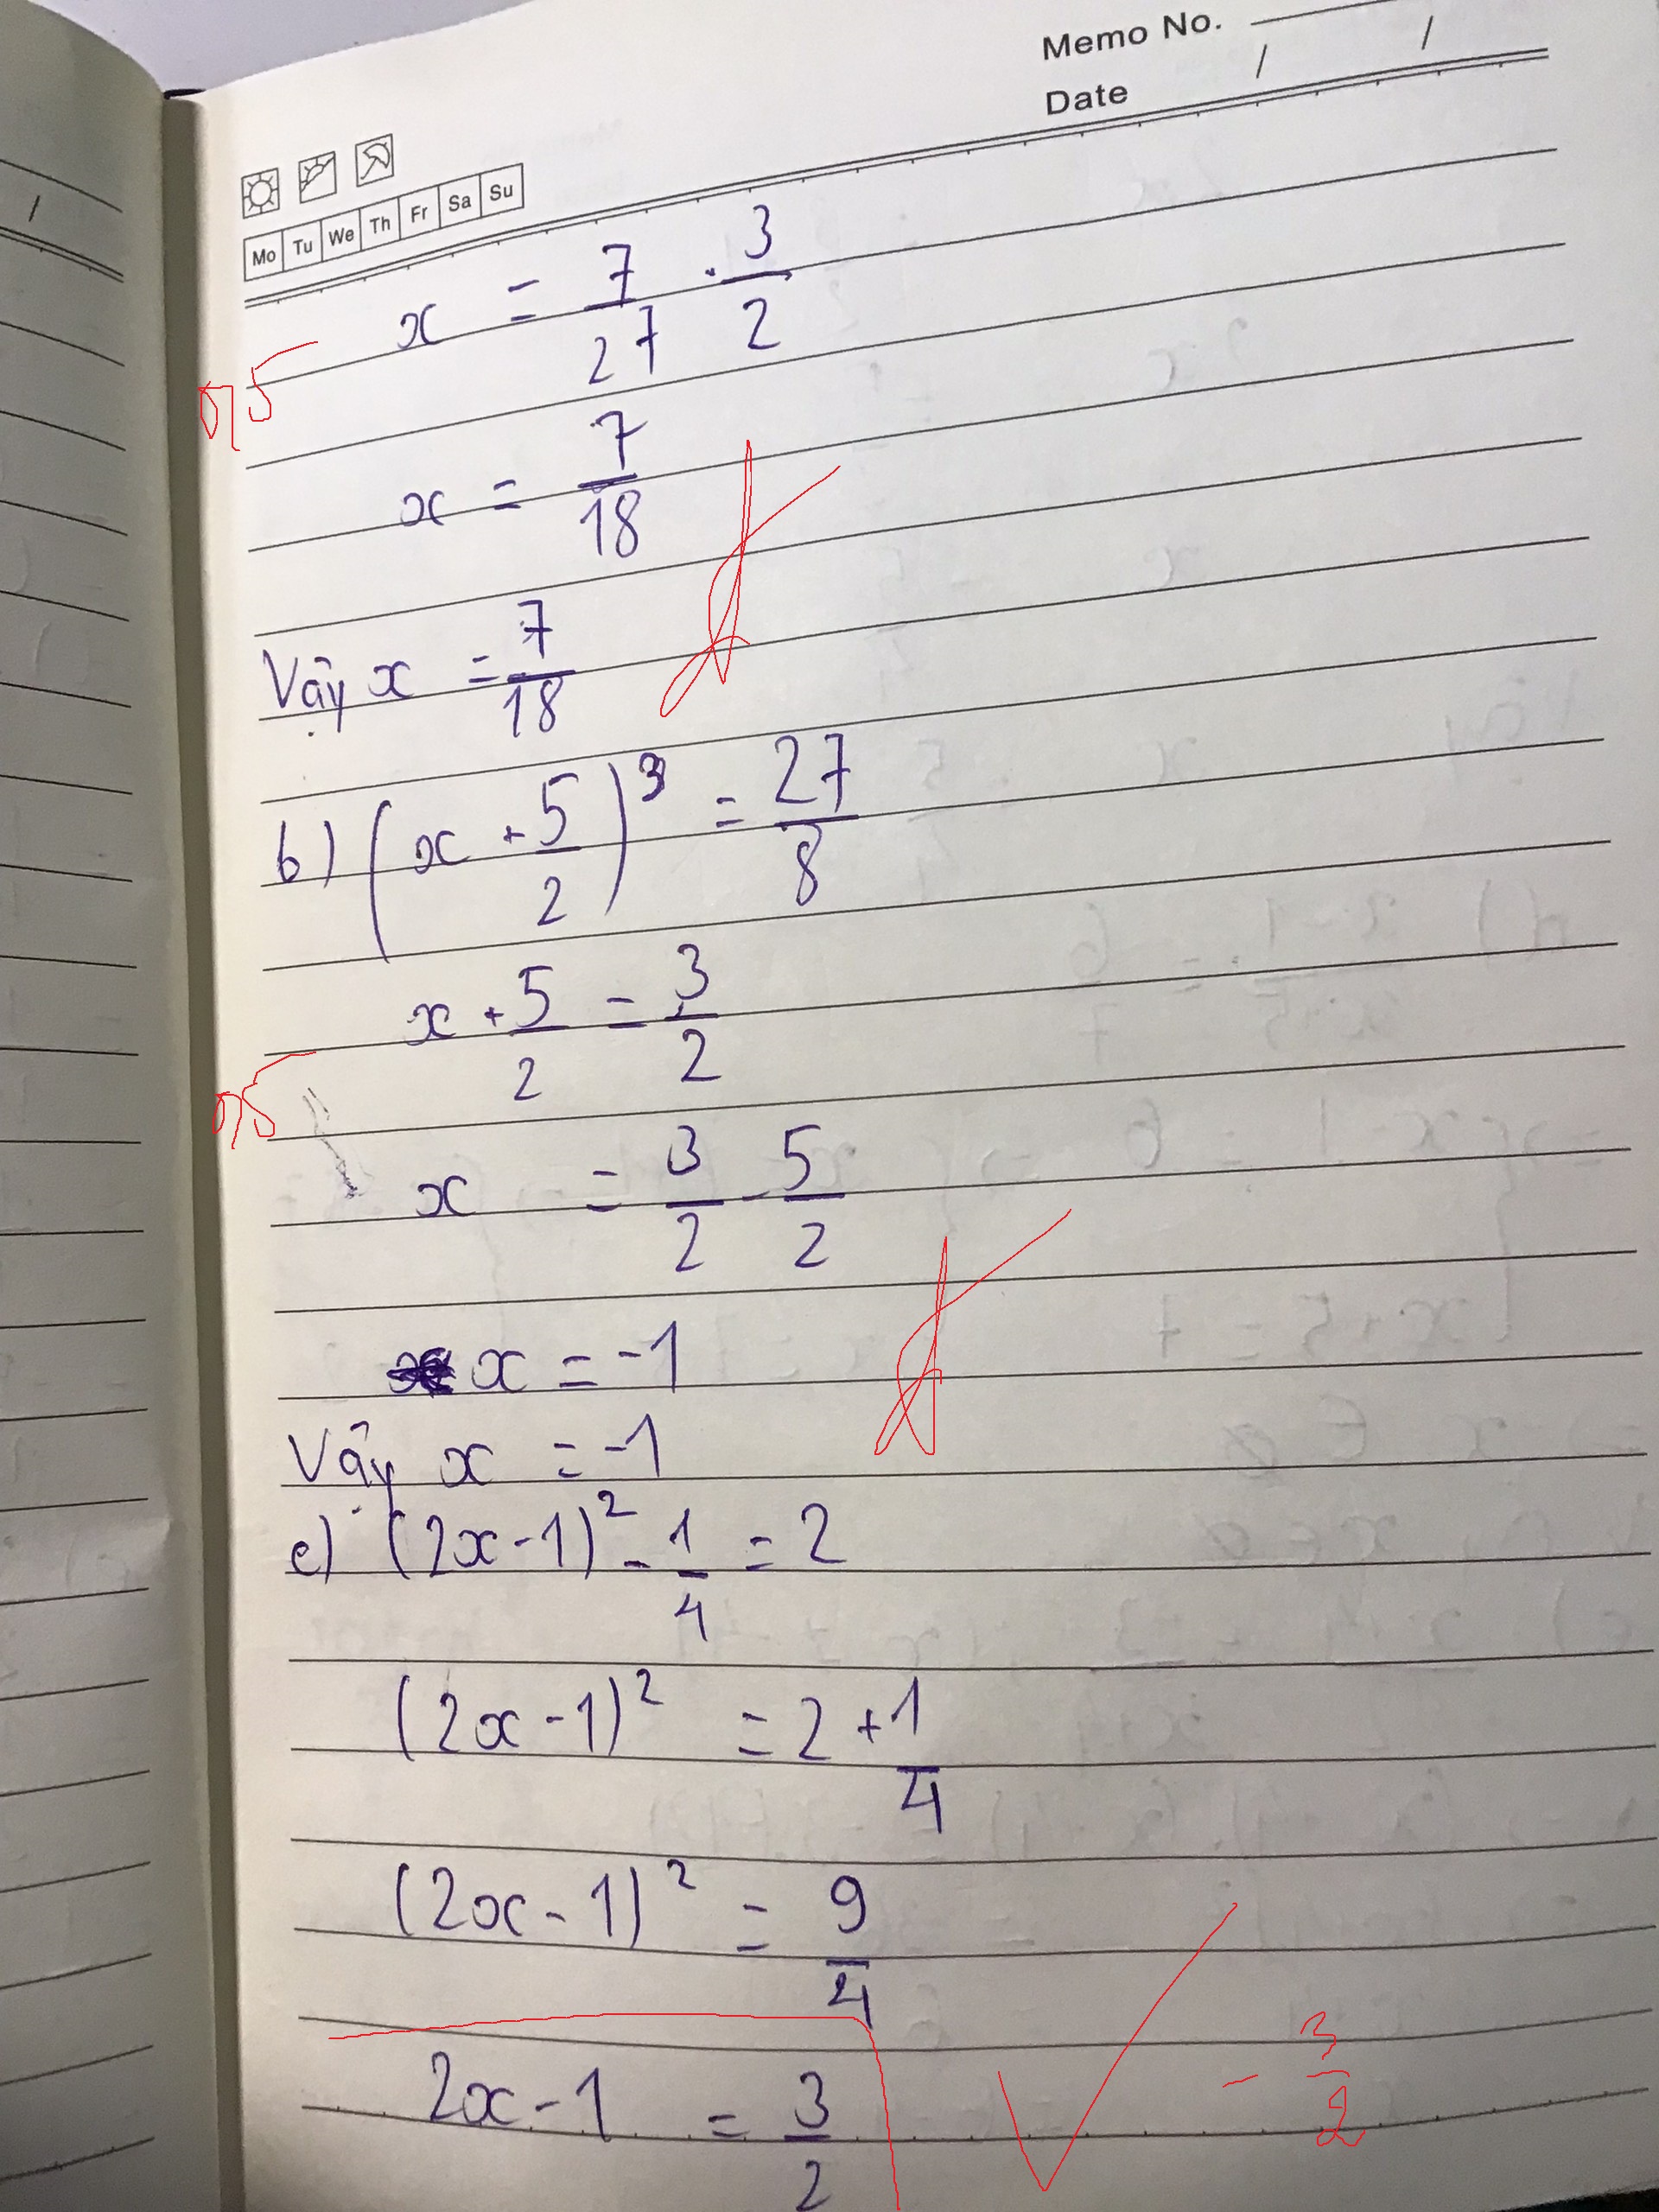 Memo No.
Date / /
Mo Tu We Th Fr Sa Su
x = 7/27 . 3/2
0,5
x = 7/18
Vậy x = 7/18
b) (x + 5/2)³ = 27/8
x + 5/2 = 3/2
0,5
x = 3/2 - 5/2
x = -1
Vậy x = -1
c) (2x - 1)² - 1/4 = 2
(2x - 1)² = 2 + 1/4
(2x - 1)² = 9/4
2x - 1 = 3/2
- 3/2